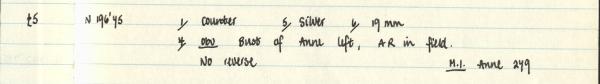 £5 N 196'45 1/ Counter 5/ Silver 6/ 19 mm
4/ Obv Bust of Anne left, AR in field.
No reverse M.I. Anne 249